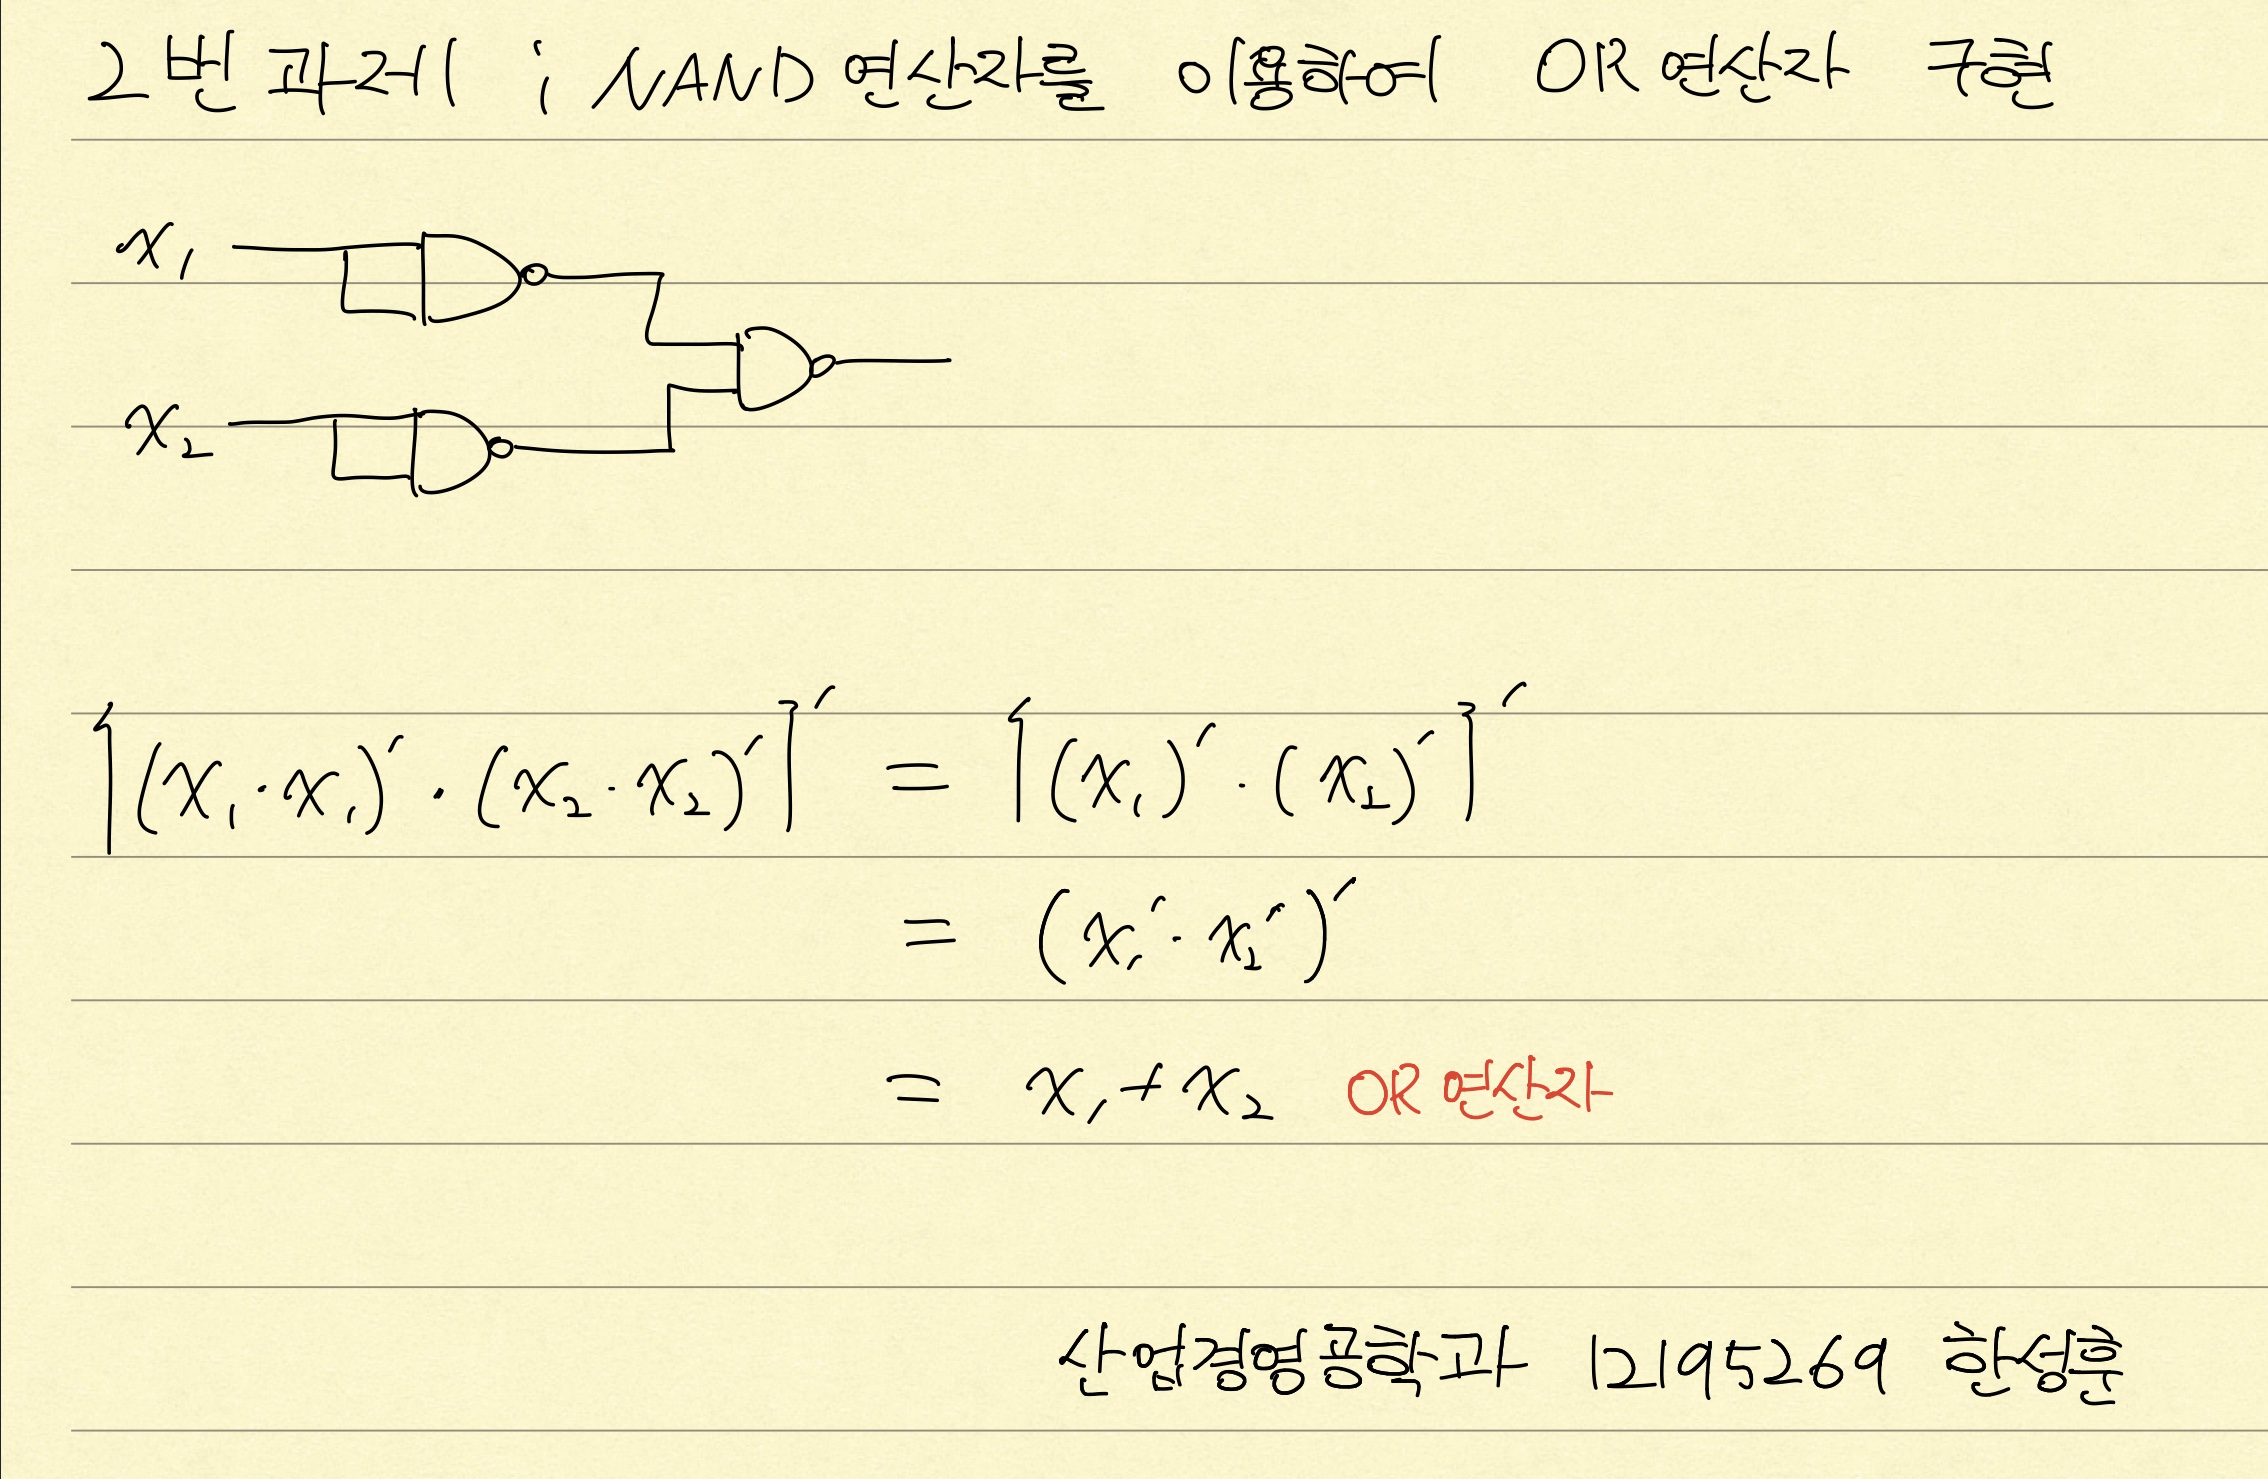 2번 과제 ; NAND 연산자를 이용하여 OR 연산자 구현
x₁
x₂
[(x₁·x₁)′·(x₂·x₂)′]′ = [(x₁)′·(x₂)′]′
= (x₁′·x₂′)′
= x₁+x₂ OR 연산자
산업경영공학과 12195269 한성훈